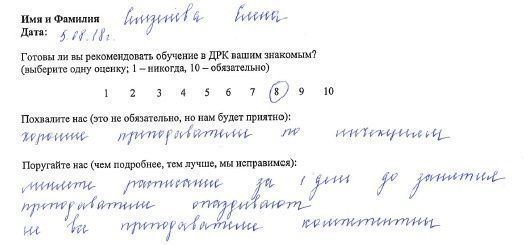 Имя и Фамилия Елена
Дата: 5.08.18г.
Готовы ли вы рекомендовать обучение в ДРК вашим знакомым?
(выберите одну оценку; 1 – никогда, 10 – обязательно)
1 2 3 4 5 6 7 8 9 10
Похвалите нас (это не обязательно, но нам будет приятно):
хорошие преподаватели по
Поругайте нас (чем подробнее, тем лучше, мы исправимся):
меняете расписание за 1 день до занятия
преподаватели опаздывают
не все преподаватели компетентны